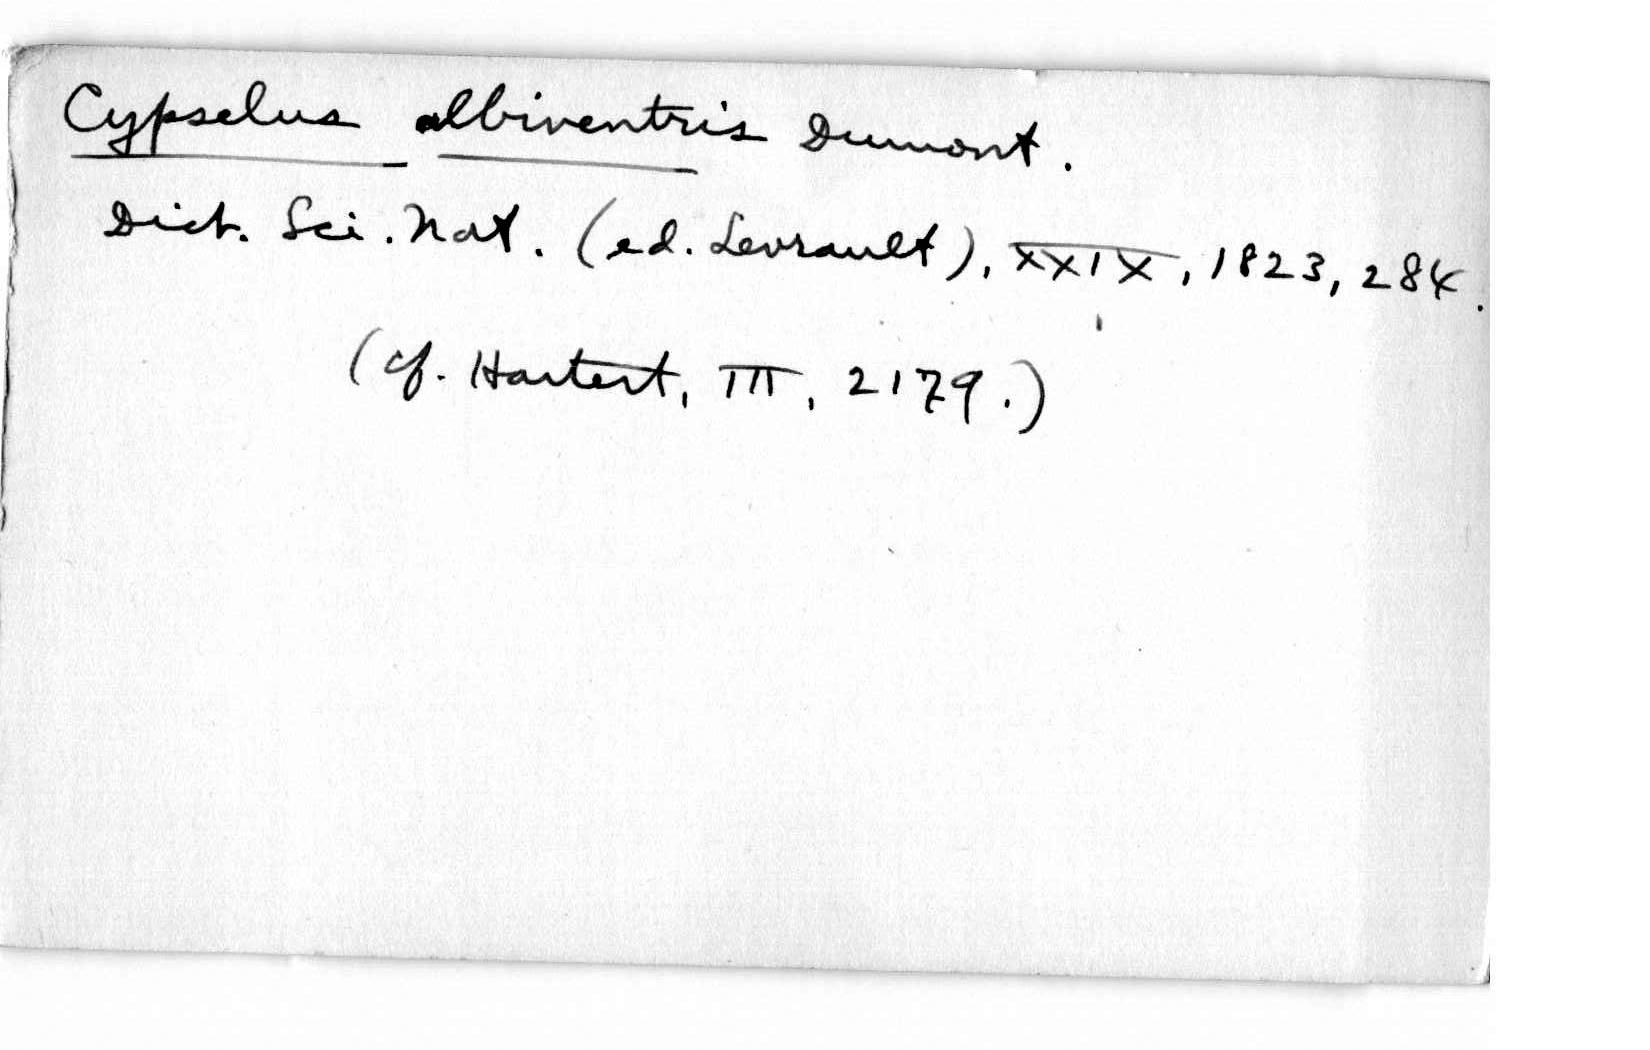 Cypselus albiventris Dumont.
Dict. Sci. Nat. (ed. Levrault), XXIX, 1823, 284.
(cf. Hartert, III, 2179.)